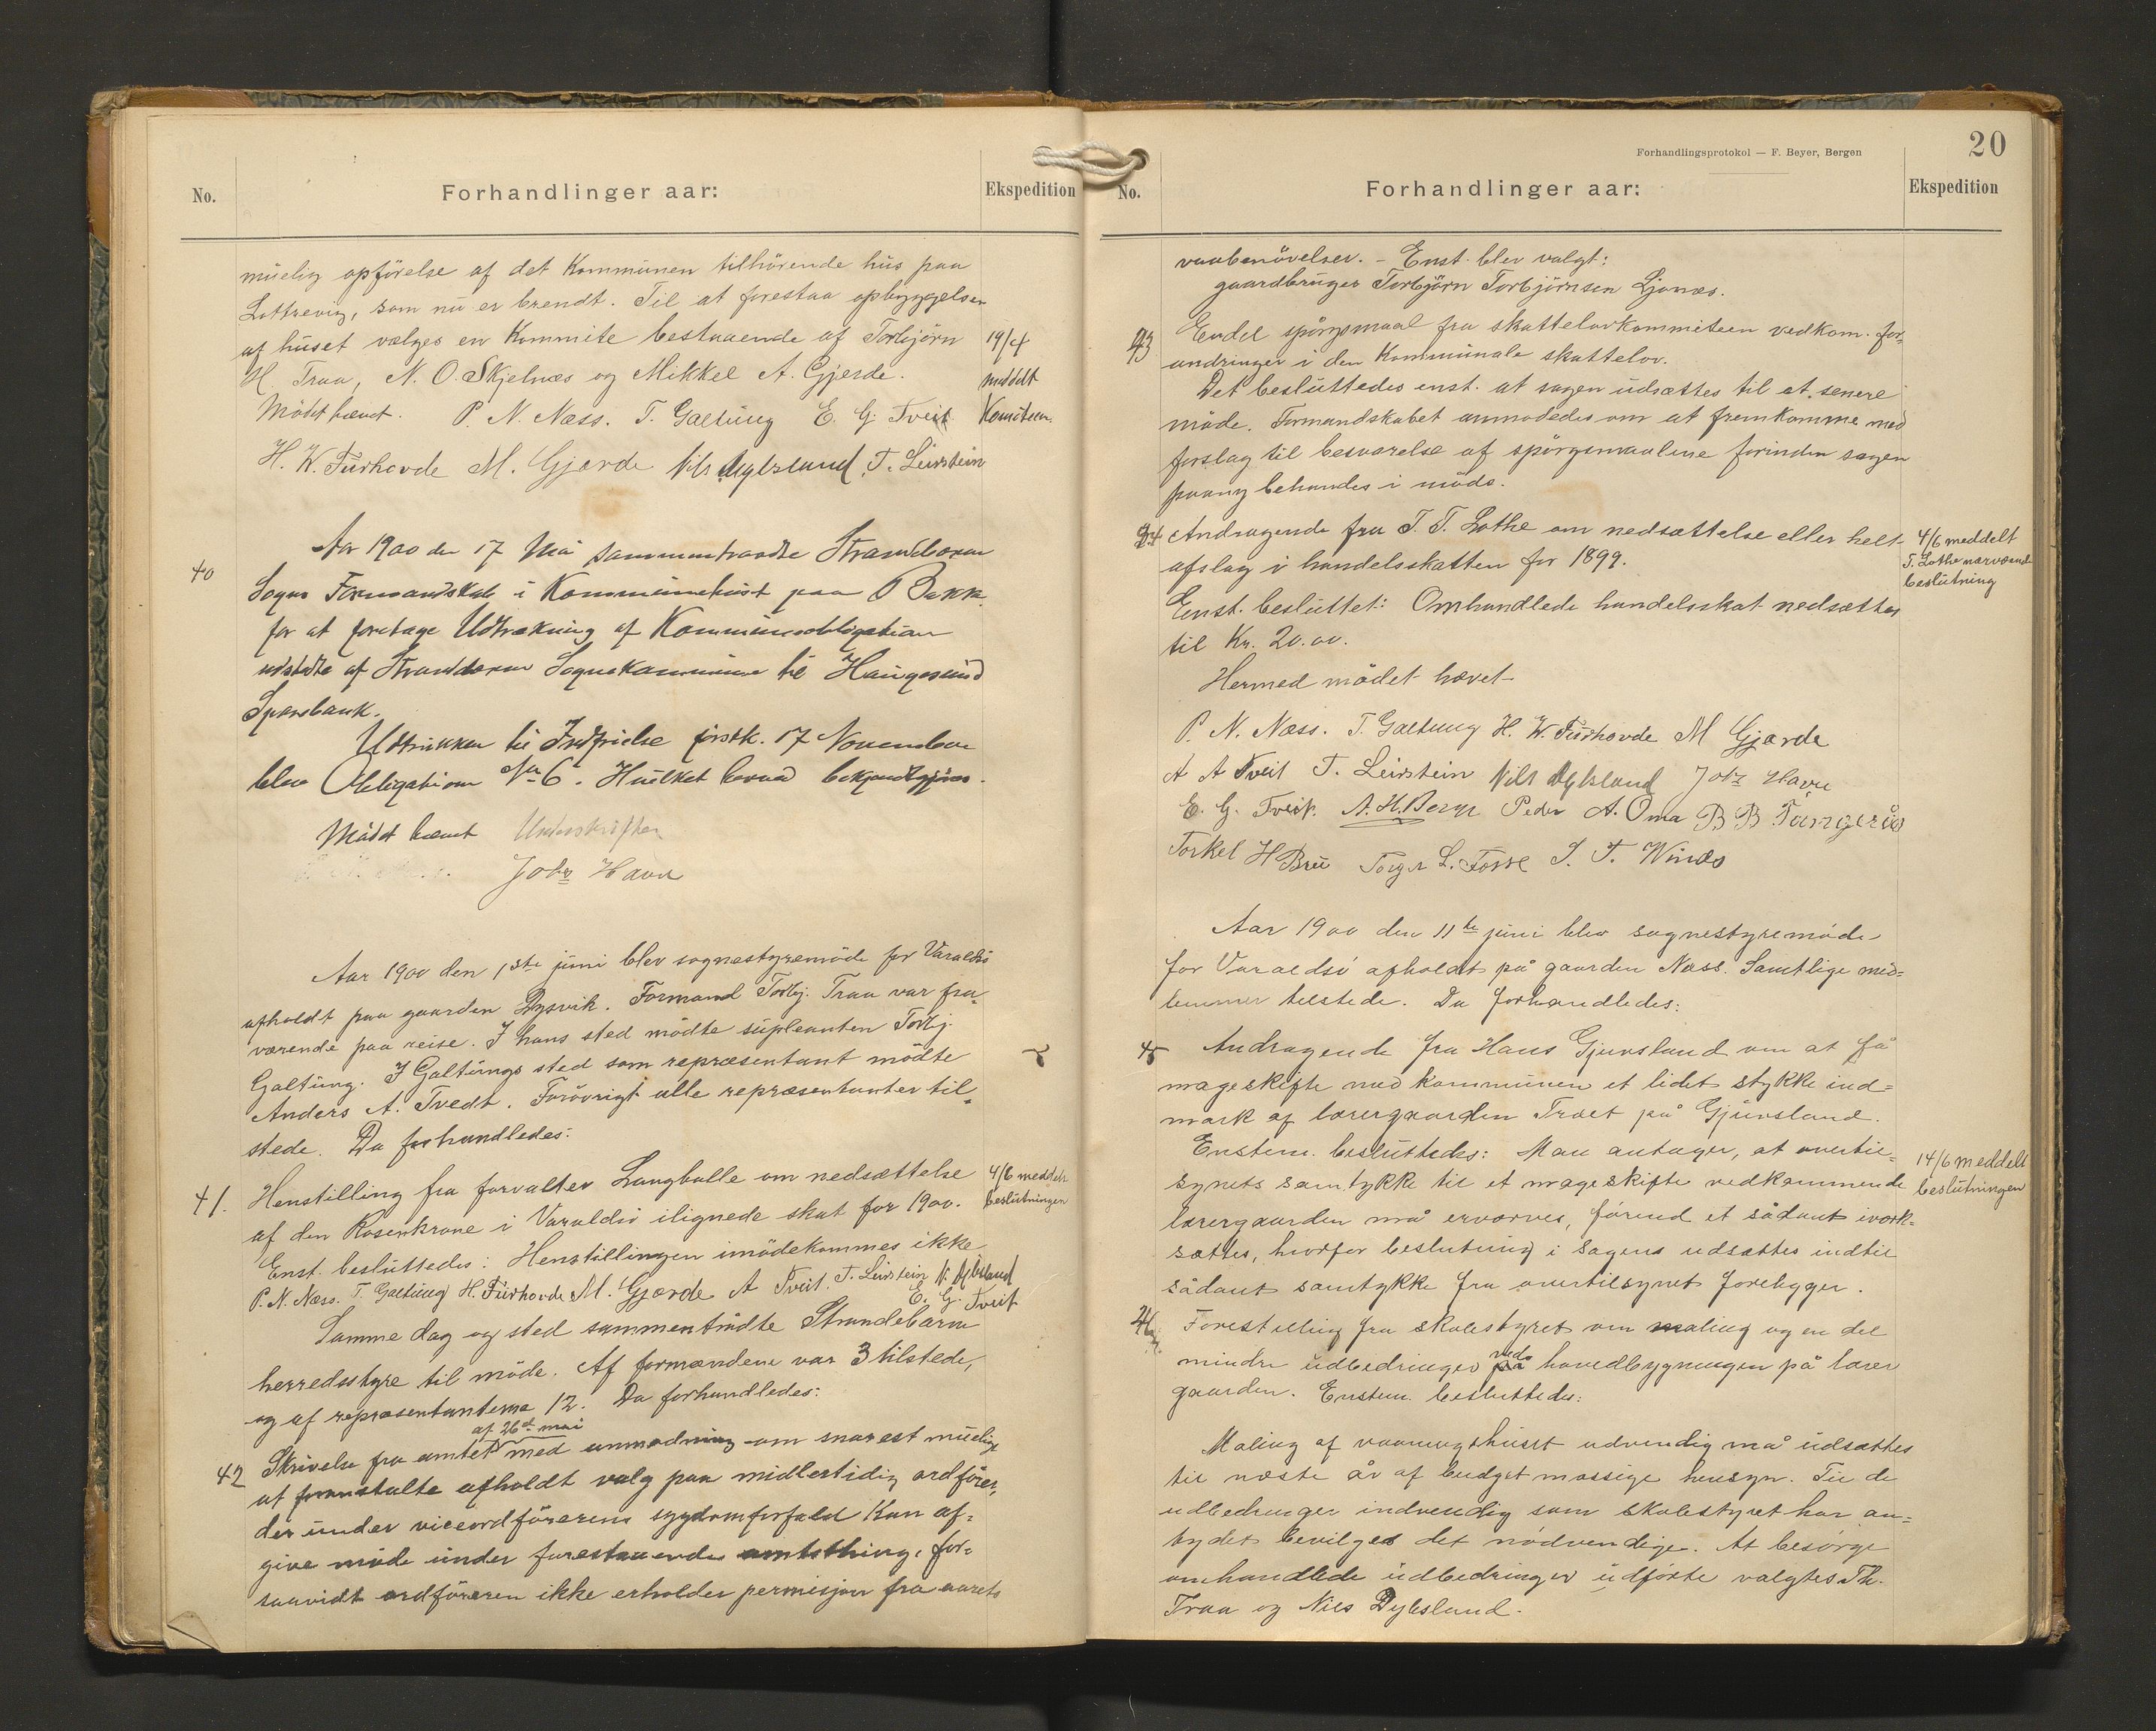 No.
Forhandlinger aar:
Ekspedition
muelig opförelse af det Kommunen tilhörende hus paa
Lottrevig, som nu er brendt. Til at forestaa opbyggelsen
af huset vælges en Kommite bestaaende af Torbjörn
H. Traa, N. O. Skjelnæs og Mikkel A. Gjerde.
19/4
meddelt
Komiteen.
Mödet hævet. P. N. Næss. T. Galtung E. G. Tveit
H. W. Furhovde M. Gjærde Nils Dybsland T. Leirstein
40
Aar 1900 den 17 Mai sammentraadte Strandebarm
Sogns Formandskab i Kommunehuset paa Bakke
for at foretage Udtrækning af Kommuneobligation
udstedte af Strandebarm Sognekommune til Haugesund
Sparebank.
Udtrukken til Indfrielse förstk. 17 November
blev Obligation No 6. Hvilket herved bekjendtgjöres.
Mödet hævet Underskrifter
Johs Havn
Aar 1900 den 1ste juni blev sognestyremöde for Varaldsö
afholdt paa gaarden Dysvik. Formand Torbj. Traa var fra-
værende paa reise. I hans sted mödte supleanten Torbj.
Galtung. I Galtungs sted som repræsentant mödte
Anders A. Tvedt. Forövrigt alle repræsentanter til-
stede. Da forhandledes:
41.
Henstilling fra forvalter Langballe om nedsættelse
af den Rosenkrone i Varaldsö ilignede skat for 1900.
4/6 meddelt
beslutningen
Enst. besluttedes: Henstillingen imödekommes ikke
P. N. Næss. T. Galtung H. Furhovde M. Gjærde A Tveit. T. Leirstein N. Dybsland
E. G. Tveit
Samme dag og sted sammentrådte Strandebarm
herredsstyre til möde. Af formændene var 3 tilstede,
og af repræsentanterne 12. Da forhandledes:
af 26de mai
42
Skrivelse fra amtet med anmodning om snarest muelig
at foranstalte afholdt valg paa midlertidig ordförer,
der under viceordförerens sygdomsforfald kan af-
give möde under forestaaende amtsthing, for-
saavidt ordföreren ikke erholder permisjon fra aarets
Forhandlingsprotokol — F. Beyer, Bergen
20
No.
Forhandlinger aar:
Ekspedition
vaabenövelser. - Enst. blev valgt:
gaardbruger Torbjörn Torbjörnsen Ljonæs.
43
Endel spörgsmaal fra skattelovkommiteen vedkom. for-
andringer i den Kommunale skattelov.
Det besluttedes enst. at sagen udsættes til et senere
möde. Formandskabet anmodedes om at fremkomme med
forslag til besvarelse af spörgsmaalene forinden sagen
paany behandes i möde.
44
Andragende fra T. T. Lothe om nedsættelse eller helt
afslag i handelsskatten for 1899.
4/6 meddelt
T. Lothe nærværende
beslutning
Enst. besluttet: Omhandlede handelsskat nedsættes
til Kr. 20.00.
Hermed mödet hævet
P. N. Næss. T. Galtung H. W. Furhovde M Gjærde
A A Tveit T. Leirstein Nils Dybsland Johs Havn
E. G. Tveit. A. H. Berge Peder A. Oma B B Tangerås
Torkel H Bru Torger L. Fosse T. Winæs
Aar 1900 den 11te juni blev sognestyremöde
for Varaldsö afholdt på gaarden Næss. Samtlige med-
lemmer tilstede. Da forhandledes:
45
Andragende fra Hans Gjuvsland om at få
mageskifte med kommunen et lidet stykke ind-
mark af lærergaarden Træet på Gjuvsland.
Enstem. besluttedes: Man antager, at overtil-
synets samtykke til et mageskifte vedkommende
lærergaarden må erværves, förend et sådant iværk-
sættes, hvorfor beslutning i sagens udsættes indtil
sådant samtykke fra overtilsynet foreligger.
14/6 meddelt
beslutningen
46
Forestilling fra skolestyret om maling og en del
mindre udbedringer ved hovedbygningen på lærer
gaarden. Enstem. besluttedes:
Maling af vaaningshuset udvendig må udsættes
til næste år af budget mæssige hensyn. Til de
udbedringer indvendig som skolestyret har an-
tydet bevilges det nödvendige. At besörge
omhandlede udbedringer udförte valgtes Th.
Traa og Nils Dybsland.